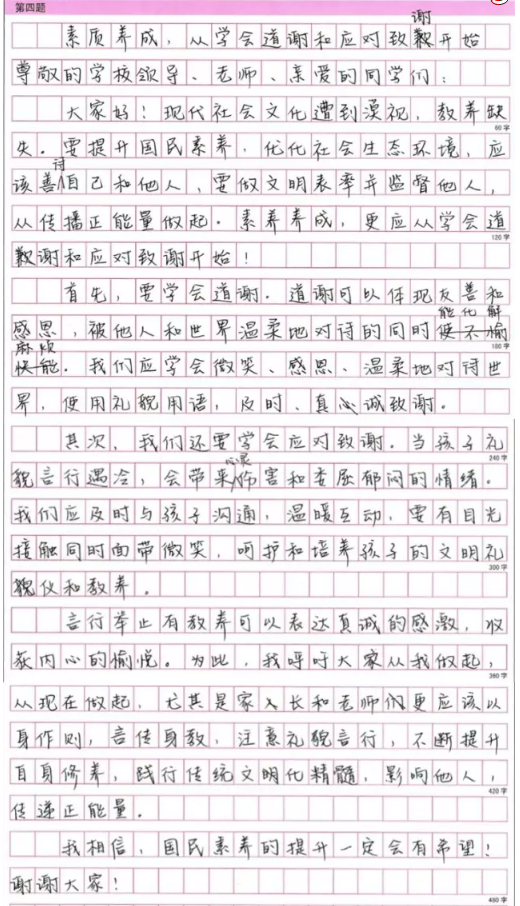 第四题
素质养成，从学会道谢和应对致谢开始
尊敬的学校领导、老师、亲爱的同学们：
大家好！现代社会文化遭到漠视，教养缺
60字
失。要提升国民素养，优化社会生态环境，应
该善待自己和他人，要做文明表率并监督他人，
从传播正能量做起。素养养成，更应从学会道
120字
谢和应对致谢开始！
首先，要学会道谢。道谢可以体现友善和
感恩，被他人和世界温柔地对待的同时能化解
180字
麻烦。我们应学会微笑、感恩、温柔地对待世
界，使用礼貌用语，及时、真心诚致谢。
其次，我们还要学会应对致谢。当孩子礼
240字
貌言行遇冷，会带来心灵伤害和委屈郁闷的情绪。
我们应及时与孩子沟通，温暖互动，要有目光
接触同时面带微笑，呵护和培养孩子的文明礼
300字
貌仪和教养。
言行举止有教养可以表达真诚的感激，收
获内心的愉悦。为此，我呼吁大家从我做起，
360字
从现在做起，尤其是家长和老师们更应该以
身作则，言传身教，注意礼貌言行，不断提升
自身修养，践行传统文明化精髓，影响他人，
420字
传递正能量。
我相信，国民素养的提升一定会有希望！
谢谢大家！
480字